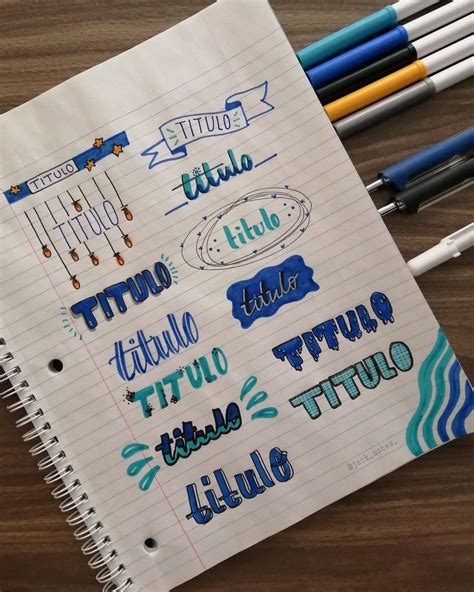 TITULO
TITULO
TITULO
titulo
titulo
TITULO
titulo
titulo
TITULO
TITULO
TITULO
titulo
titulo
@jack_notes_